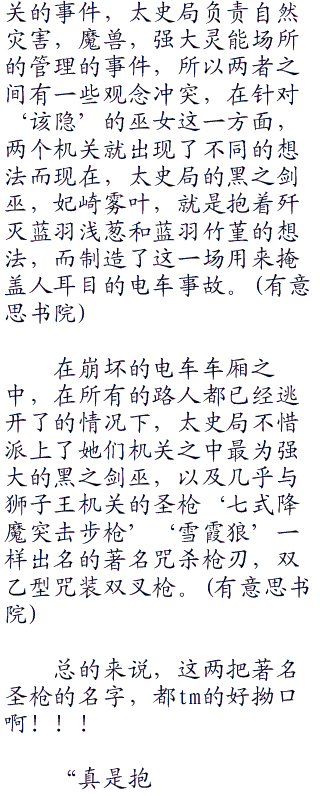 关的事件，太史局负责自然
灾害，魔兽，强大灵能场所
的管理的事件，所以两者之
间有一些观念冲突，在针对
‘该隐’的巫女这一方面，
两个机关就出现了不同的想
法而现在，太史局的黑之剑
巫，妃崎雾叶，就是抱着歼
灭蓝羽浅葱和蓝羽竹堇的想
法，而制造了这一场用来掩
盖人耳目的电车事故。（有意
思书院）
在崩坏的电车车厢之
中，在所有的路人都已经逃
开了的情况下，太史局不惜
派上了她们机关之中最为强
大的黑之剑巫，以及几乎与
狮子王机关的圣枪‘七式降
魔突击步枪’‘雪霞狼’一
样出名的著名咒杀枪刃，双
乙型咒装双叉枪。（有意思书
院）
总的来说，这两把著名
圣枪的名字，都tm的好拗口
啊！！！
“真是抱